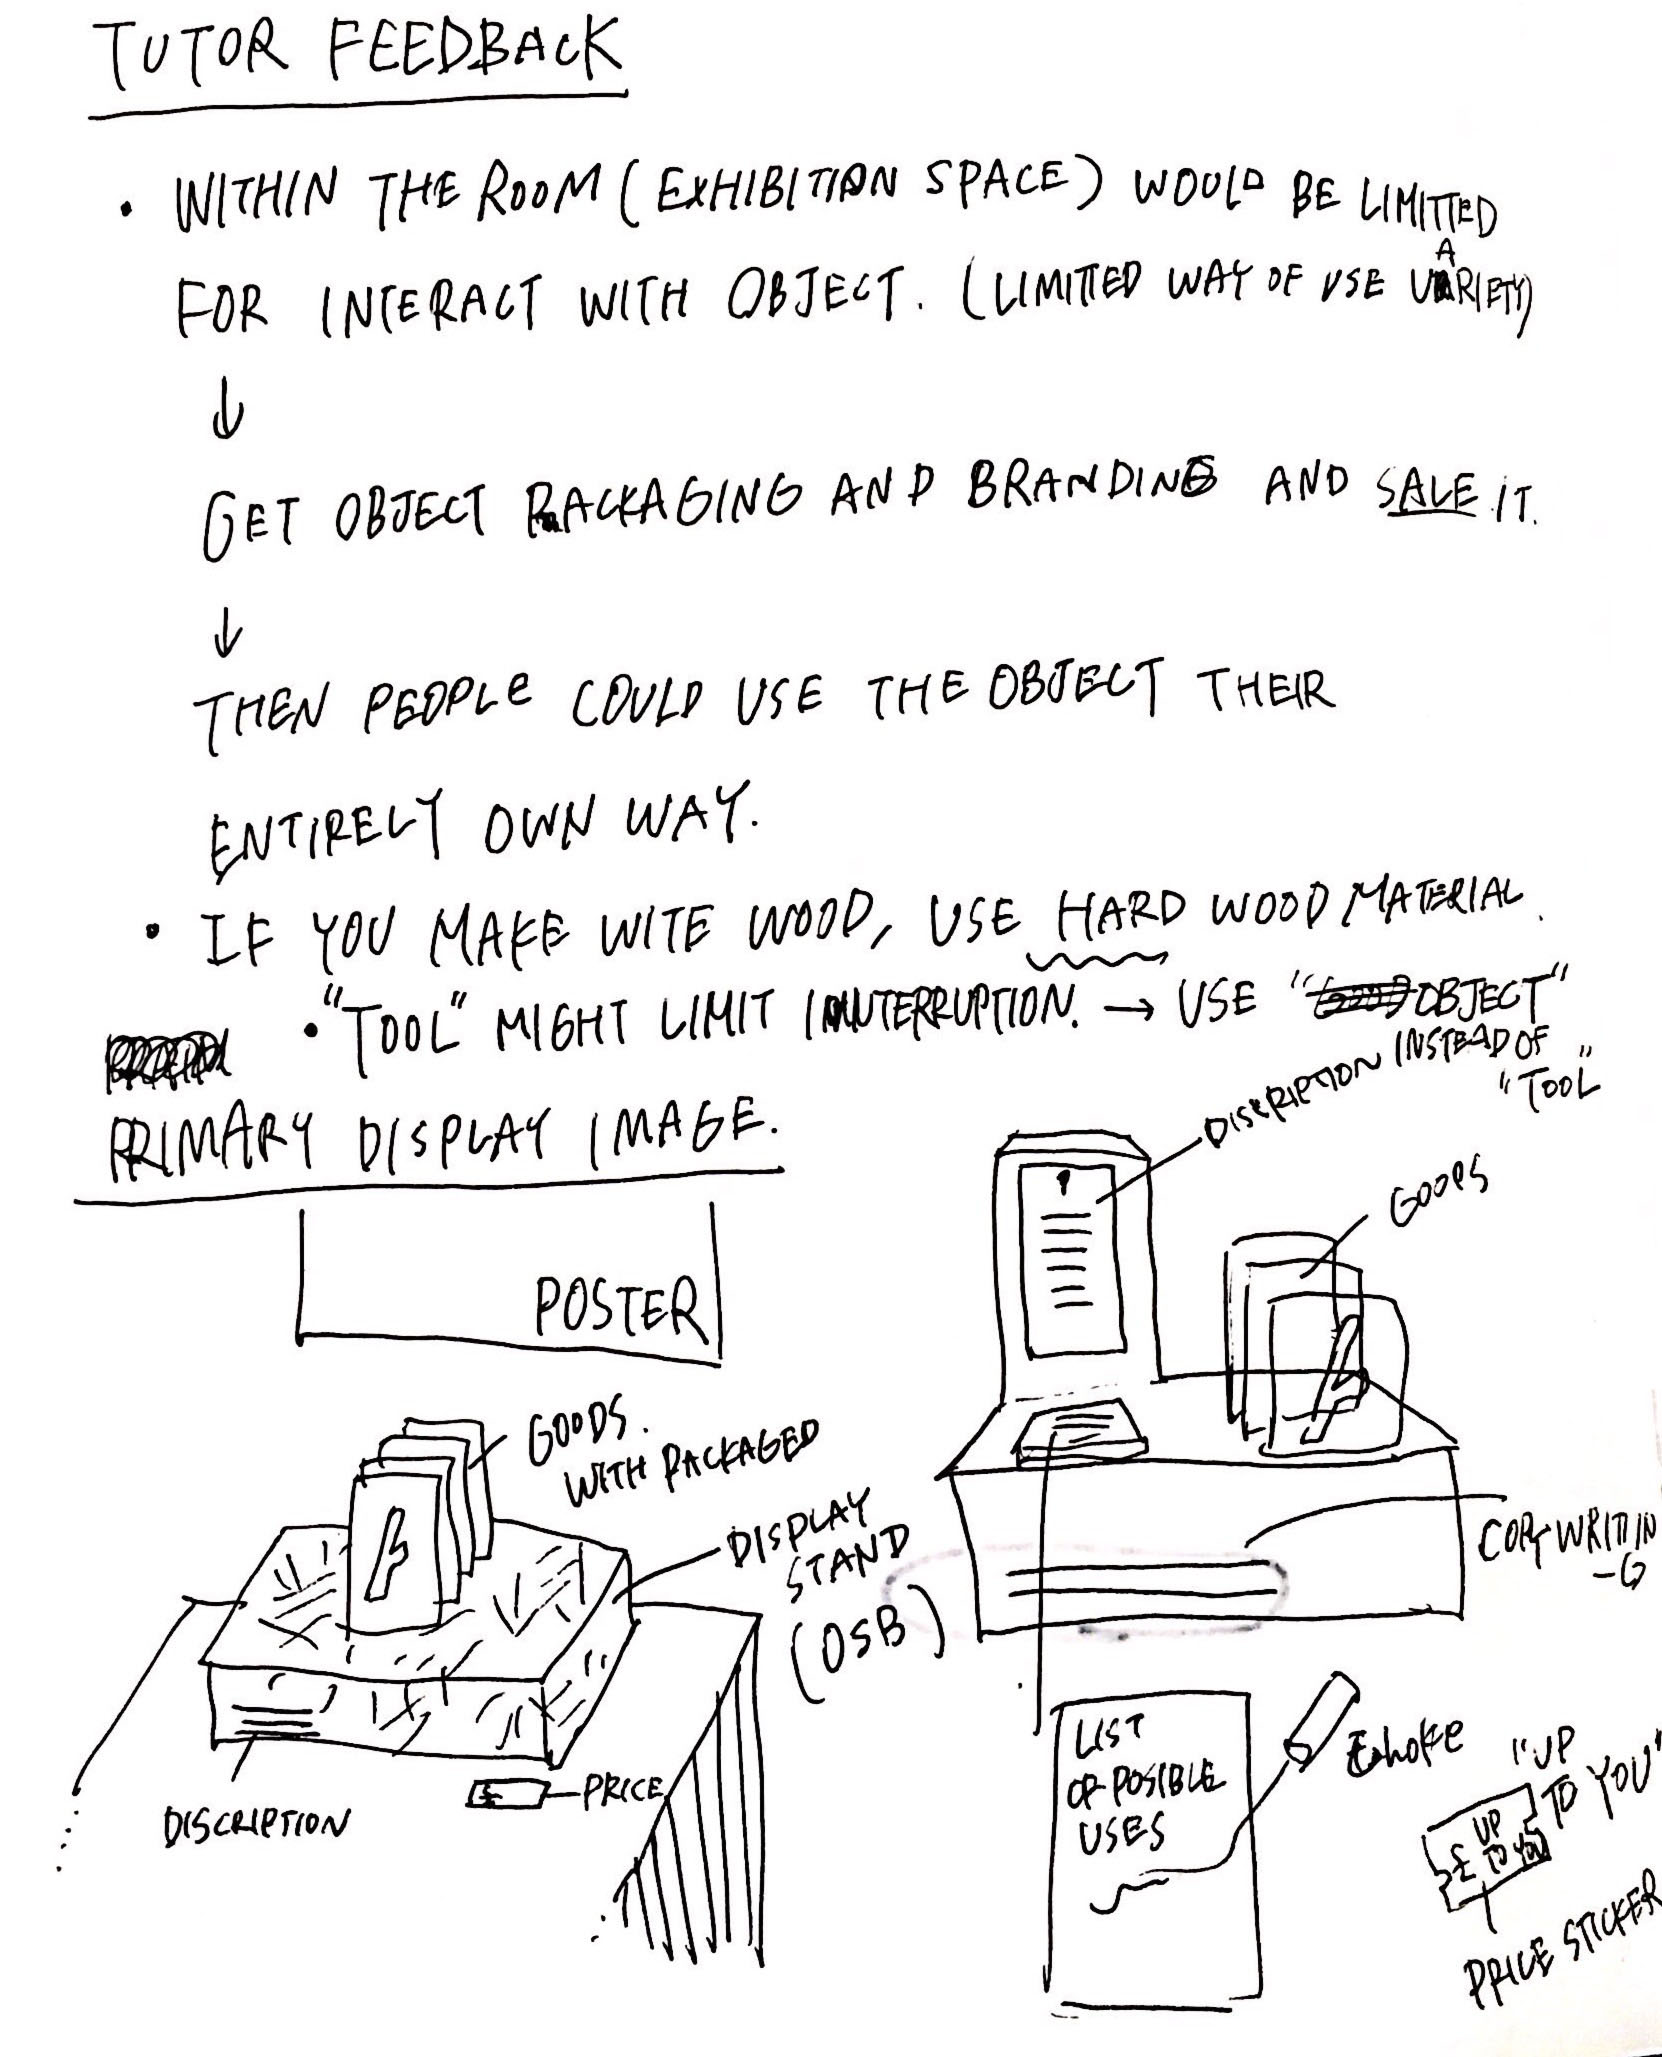 TUTOR FEEDBACK
• WITHIN THE ROOM (EXHIBITION SPACE) WOULD BE LIMITTED
FOR INTERACT WITH OBJECT. (LIMITTED WAY OF USE VARIETY)
↓
GET OBJECT PACKAGING AND BRANDING AND SALE IT.
↓
THEN PEOPLE COULD USE THE OBJECT THEIR
ENTIRELY OWN WAY.
• IF YOU MAKE WITE WOOD, USE HARD WOOD MATERIAL.
• "TOOL" MIGHT LIMIT INTERRUPTION. → USE "OBJECT"
INSTEAD OF
"TOOL"
PRIMARY DISPLAY IMAGE.
POSTER
GOODS.
WITH PACKAGED
DISPLAY
STAND
(OSB)
DISCRIPTION
£
PRICE
DISCRIPTION
GOODS
COPY WRITIN
-G
LIST
OF POSIBLE
USES
"UP
TO YOU"
£ UP
TO YOU
PRICE STICKER